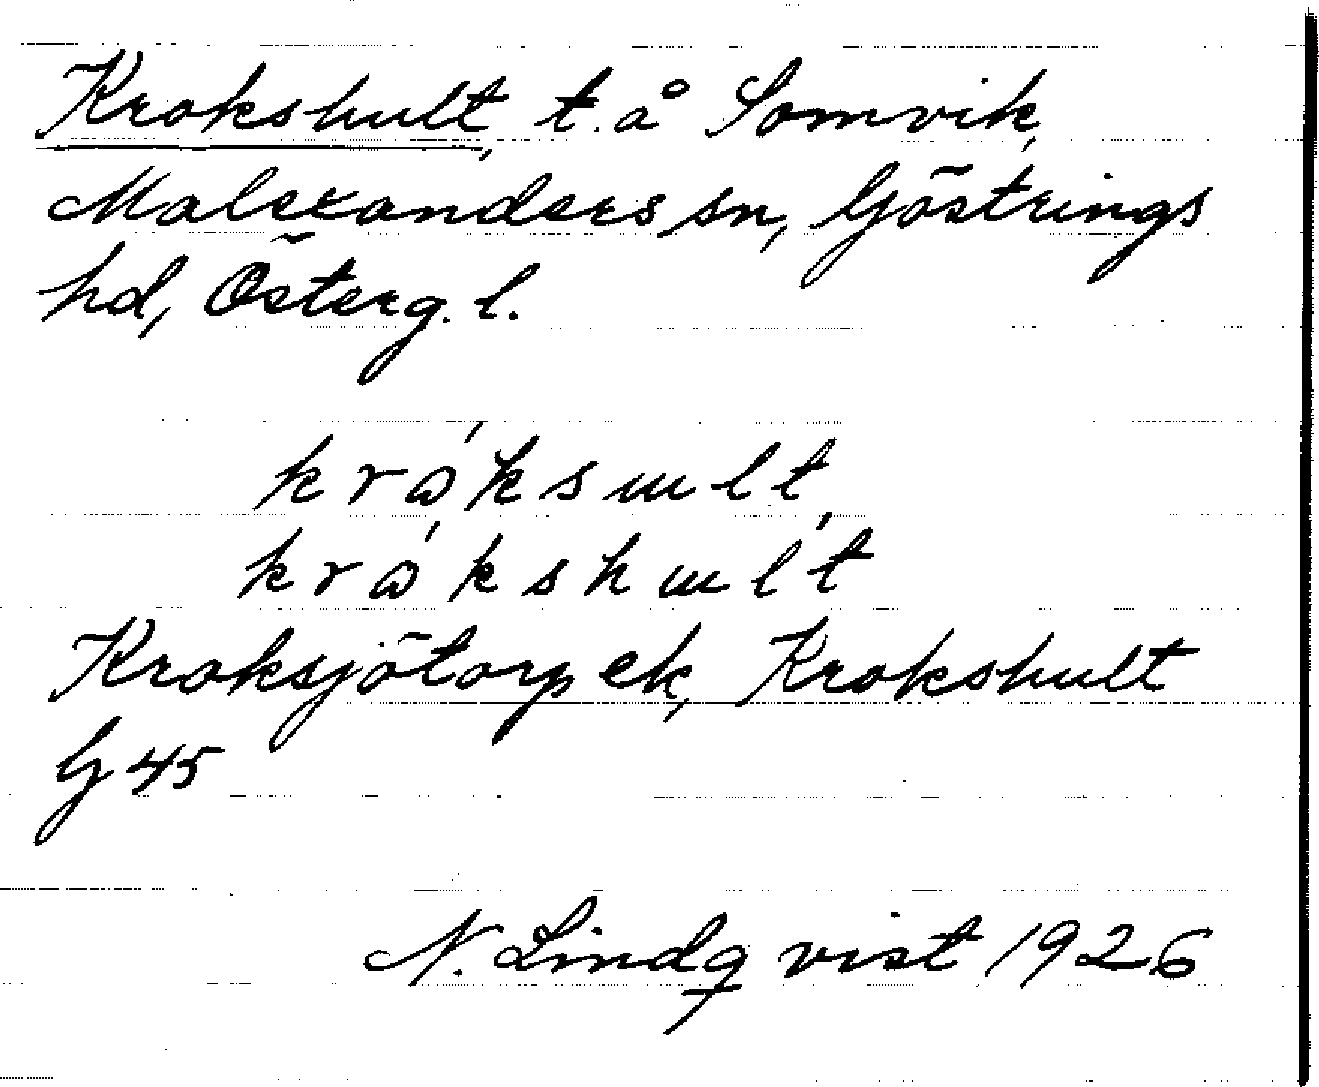 Krokshult, t. å Somvik,
Malexanders sn, Göstrings
hd, Österg. l.
kråksult,
kråkshult
Kroksjötorp ek, Krokshult
G 45
N. Lindqvist 1926